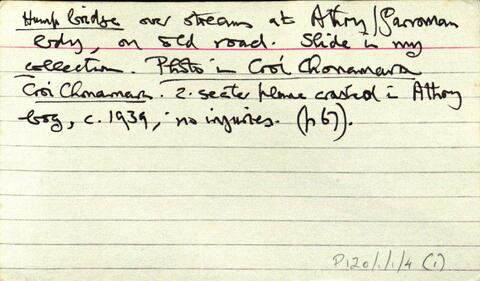 Hump bridge over stream at Athry/Garroman
body, on old road. Slide in my
collection. Photo in Croí Chonamara
Croi Chonamara. 2. seater plane crashed in Athry
bog, c. 1939, no injuries. (p 67).
P120/1/1/4 (1)